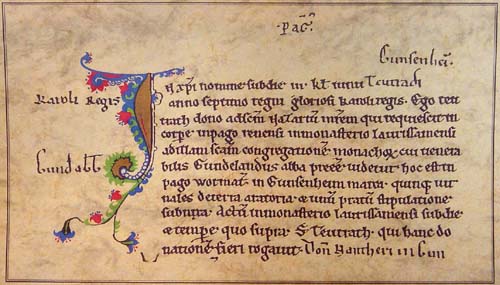 pāg̃.
Gunsenheī.
In xp̄i nomine sub die iii kł iunii Teutradi
Karoli Regis
anno septimo regni gloriosi karoli regis. Ego teu
trach dono ad scm̄ Nazariū mr̄em qui requiescit in
corpe in pago renensi in monasterio laurissamensi
ad illam scam congregationē monachoꝝ cui uenera
Gundabb̄
bilis Gundelandus abba preeē uidetur hoc est in
pago wormat̄ in Gunsenheim marca quinq; iur
nales de terra aratoria & unū pratū stipulatione
subnixa. Actū in monasterio laurissamensi sub die
& tempe quo supra. S. Teutrach. qui hanc do
nationē fieri rogauit. Don̄ Hantheri in Gun